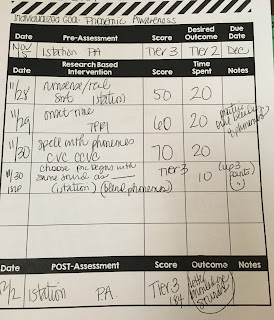 Individualized Goal: Phonemic Awareness
Date Pre-Assessment Score Desired Outcome Due Date
Nov/5 Istation PA Tier 3 Tier 2 Dec
Date Research Based Intervention Score Time Spent Notes
11/28 nonsense/real sort istation 50 20
11/29 onset rime TPRI 60 20
11/30 spell with phonemes CVC CCVC 70 20
11/30 choose pic begins with same sound as ___ (istation) (blend phonemes) Tier 3 10 (up 3 points)
Date POST-Assessment Score Outcome Notes
12/2 Istation PA Tier 3 184